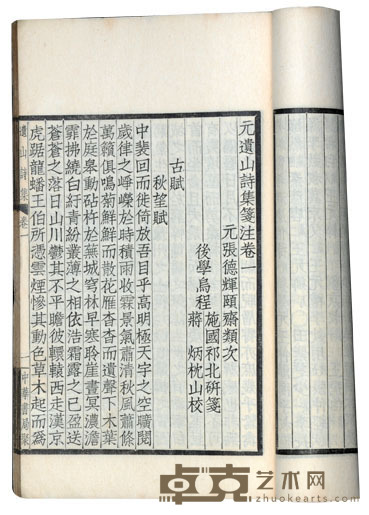 元遺山詩集箋注卷一
元張德輝頤齋類次
後學烏程
施國祁北硏箋
蔣炳枕山校
古賦
秋望賦
中裴回而徙倚放吾目乎高明極天宇之空曠閱
歲律之崢嶸於時積雨收霖景氣肅清秋風蕭條
萬籟俱鳴菊鮮鮮而散花雁杳杳而遺聲下木葉
於庭皋動砧杵於蕪城穹林早寒聆崖晝冥濃澹
霏拂繞白紆青紛叢薄之相依浩霜露之已盈送
蒼蒼之落日山川鬱其不平瞻彼轘轅西走漢京
虎踞龍蟠王伯所憑雲煙慘其動色草木起而爲
遺山詩集
卷一
一
中華書局聚
卓克艺术网
zhuokearts.com